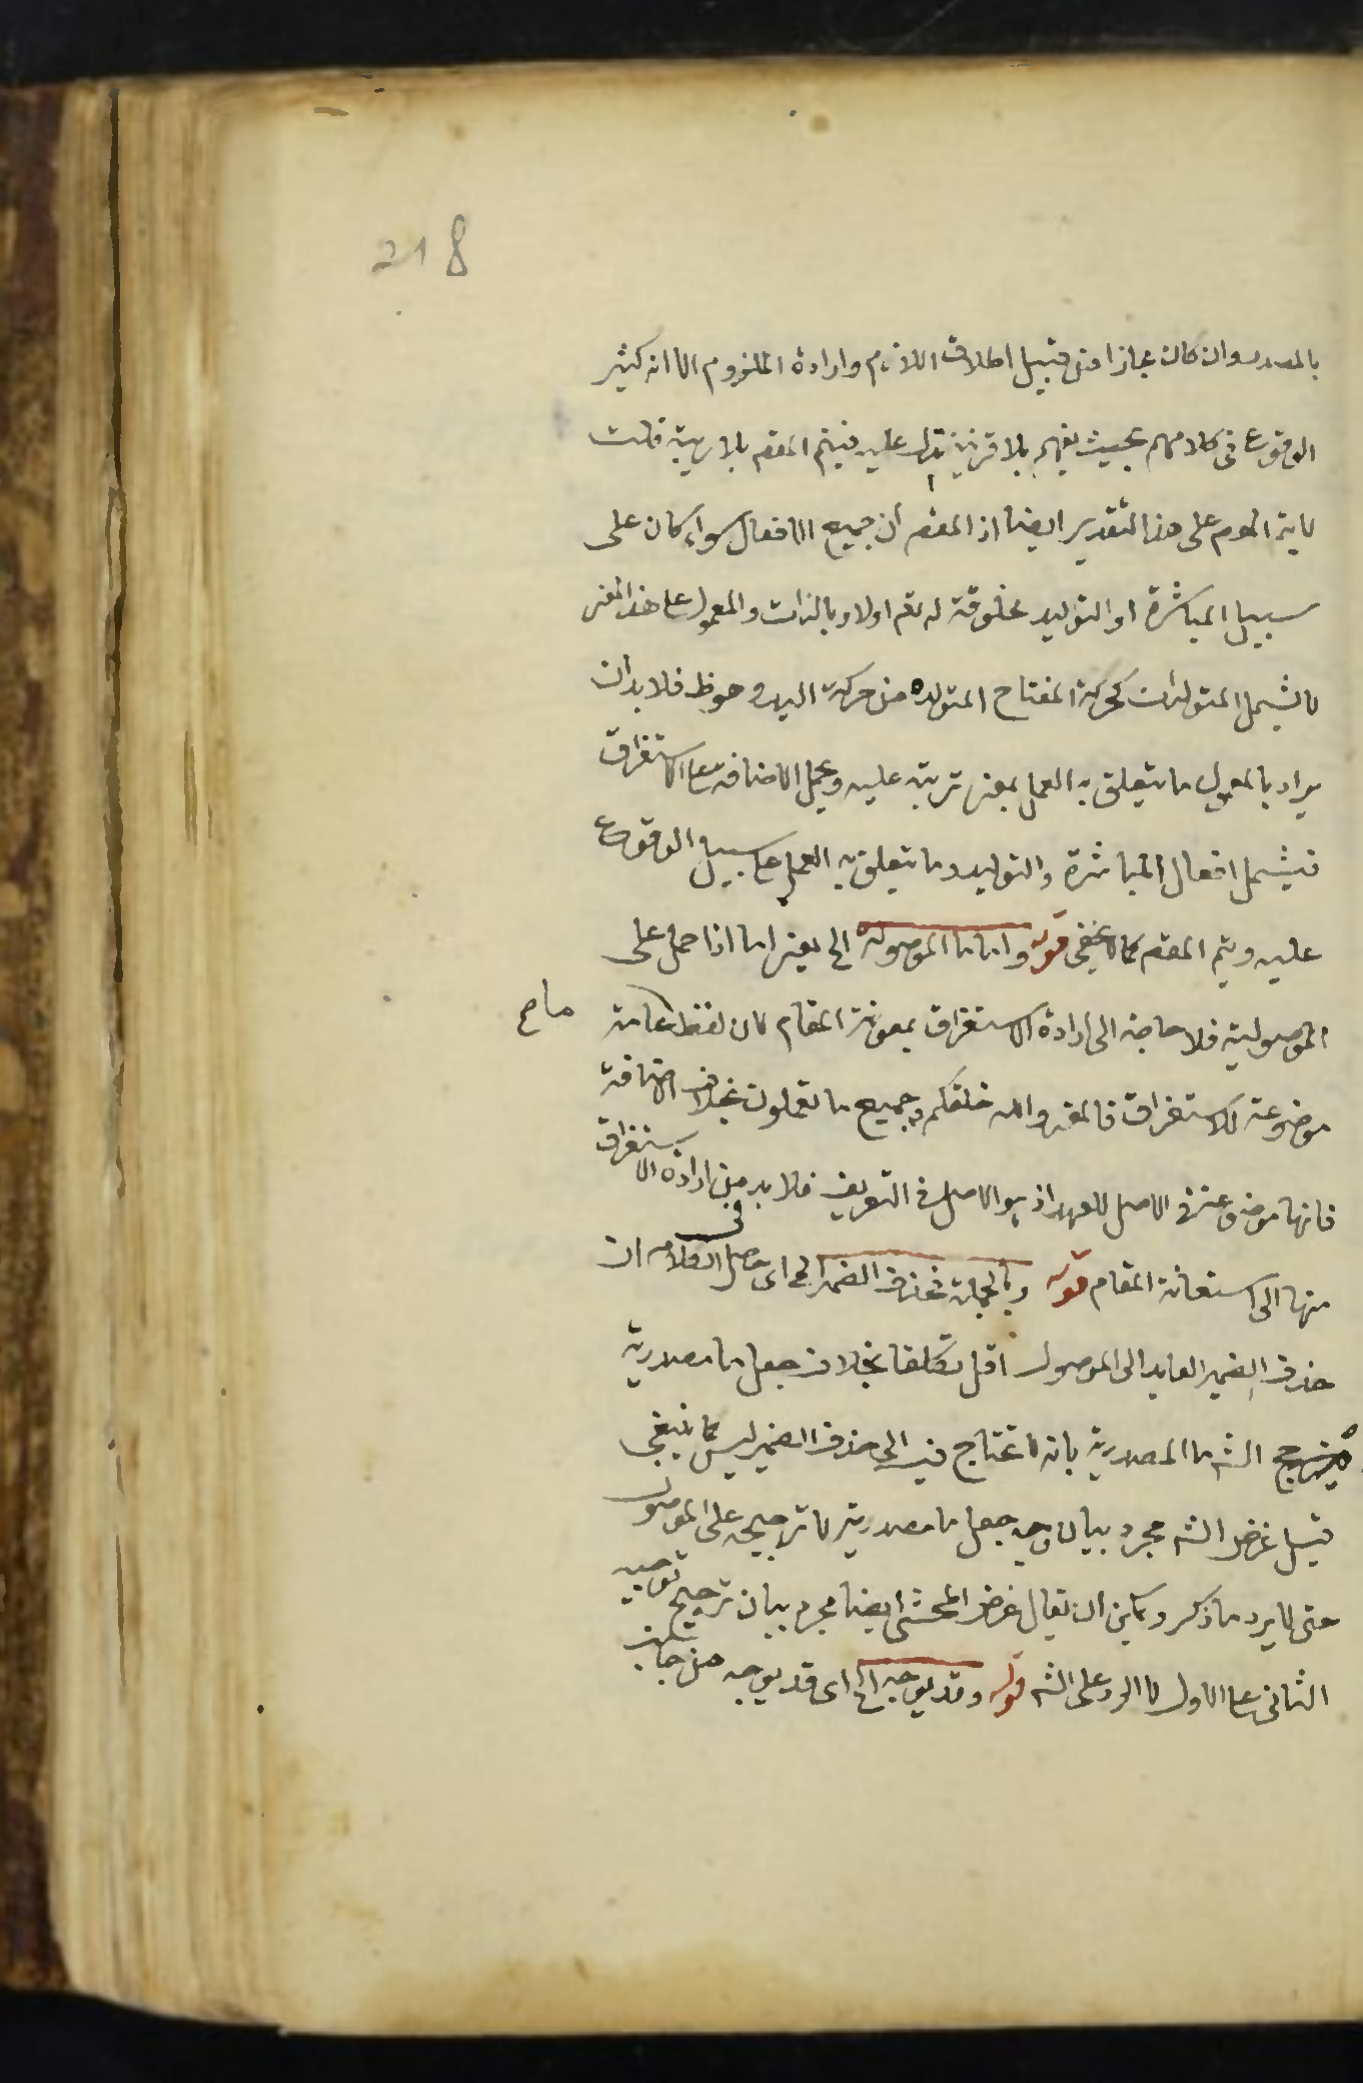 218
بالمصدر وان كان مجازا من قبيل اطلاق اللازم وارادة الملزوم الا انه كثير
الوقوع فى كلامهم بحيث يفهم بلا قرينة تدل عليه فيتم المقص بلا ريبة قلت
لا يتم المرام على هذا التقدير ايضا اذ المقص ان جميع الافعال سواء كان على
سبيل المباشرة او التوليد مخلوقة له تعم اولا وبالذات والمعمول على هذا المعنى
لا يشمل المتولدات كحركة المفتاح المتولدة من حركة اليد وهو ظ فلا بد ان
يراد بالمعمول ما يتعلق به العمل بمعنى ترتبه عليه ويحمل الاضافة على الاستغراق
فيشمل افعال المباشرة والتوليد وما يتعلق به العمل على سبيل الوقوع
عليه ويتم المقص كما لا يخفى قوله واما ما الموصولة الخ يعنى اما اذا حمل على
الموصولية فلا حاجة الى ارادة الاستغراق بمعونة المقام لان لفظ عامة
ما صح
موضوعة للاستغراق فالمعنى والله خلقكم وجميع ما تعملون بخلاف الاضافة
فانها موضوعة فى الاصل للعهد اذ هو الاصل فى التعريف فلا بد من ارادة الاستغراق
منها الى استعانة المقام قوله وبالجملة فحذف الضمير الخ اى حاصل الكلام ان
فى
حذف الضمير العايد الى الموصول اقل تكلفا بخلاف جعل ما مصدرية
الش ما المصدرية بانه لا تحتاج فيه الى حذف الضمير ليس كما ينبغى
قيل غرض الش مجرد بيان وجه جعل ما مصدرية لا ترجيحه على الموصول
حتى لا يرد ما ذكر ويمكن ان يقال غرض المحشى ايضا مجرد بيان ترجيح توجيه
الثانى على الاول لا الرد على الش قوله وقد يوجه الخ اى قد يوجه من جانب